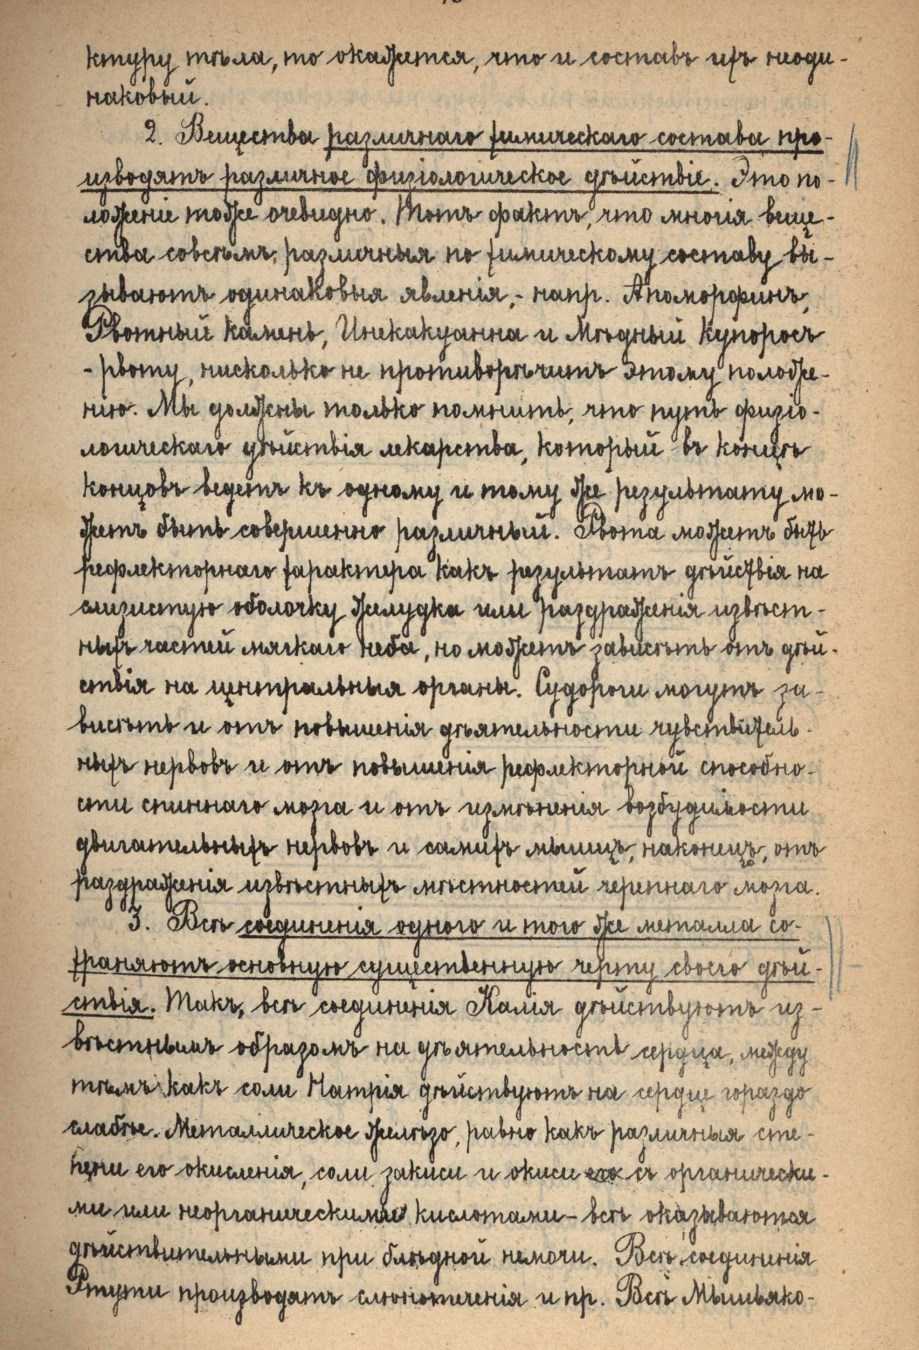 ктуру тѣла, то окажется, что и составъ ихъ неоди-
наковый.
2. Вещества различнаго химическаго состава про-
изводятъ различное физіологическое дѣйствіе. Это по-
ложеніе тоже очевидно. Тотъ фактъ, что многія веще-
ства совсѣмъ различныя по химическому составу вы-
зываютъ одинаковыя явленія, - напр. Апоморфинъ,
Рвотный камень, Ипекакуанна и Мѣдный купоросъ
- рвоту, нисколько не противорѣчитъ этому положе-
нію. Мы должны только помнить, что путь физіо-
логическаго дѣйствія лекарства, который въ концѣ
концовъ ведетъ къ одному и тому же результату мо-
жетъ быть совершенно различный. Рвота можетъ быть
рефлекторнаго характера какъ результатъ дѣйствія на
слизистую оболочку желудка или раздраженія извѣст-
ныхъ частей мягкаго неба, но можетъ зависѣть отъ дѣй-
ствія на центральныя органы. Судороги могутъ за-
висѣть и отъ повышенія дѣятельности чувствитель-
ныхъ нервовъ и отъ повышенія рефлекторной способно-
сти спиннаго мозга и отъ измѣненія возбудимости
двигательныхъ нервовъ и самихъ мышцъ, наконецъ, отъ
раздраженія извѣстныхъ мѣстностей черепнаго мозга.
3. Всѣ соединенія одного и того же металла со-
храняютъ основную существенную черту своего дѣй-
ствія. Такъ, всѣ соединенія Калія дѣйствуютъ из-
вѣстнымъ образомъ на дѣятельность сердца, между
тѣмъ какъ соли Натрія дѣйствуютъ на сердце гораздо
слабѣе. Металлическое желѣзо, равно какъ различныя сте-
пени его окисленія, соли закиси и окиси его съ органически-
ми или неорганическими кислотами - всѣ оказываются
дѣйствительными при блѣдной немочи. Всѣ соединенія
Ртути производятъ слюнотеченія и пр. Всѣ Мышьяко-